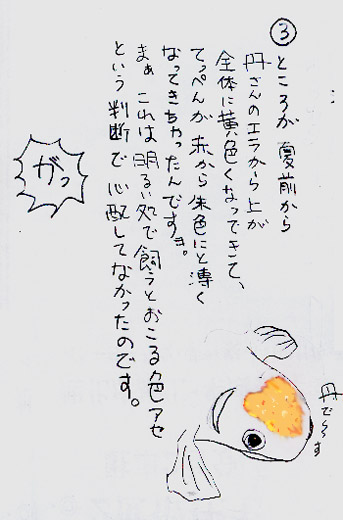 ③
ところが 夏前から
丹さんのエラから上が
全体に黄色くなってきて、
てっぺんが 赤から 朱色にと薄く
なってきちゃったんですョ。
まぁ これは明るい処で飼うとおこる色アセ
という判断で心配してなかったのです。
がっ
丹で〜す